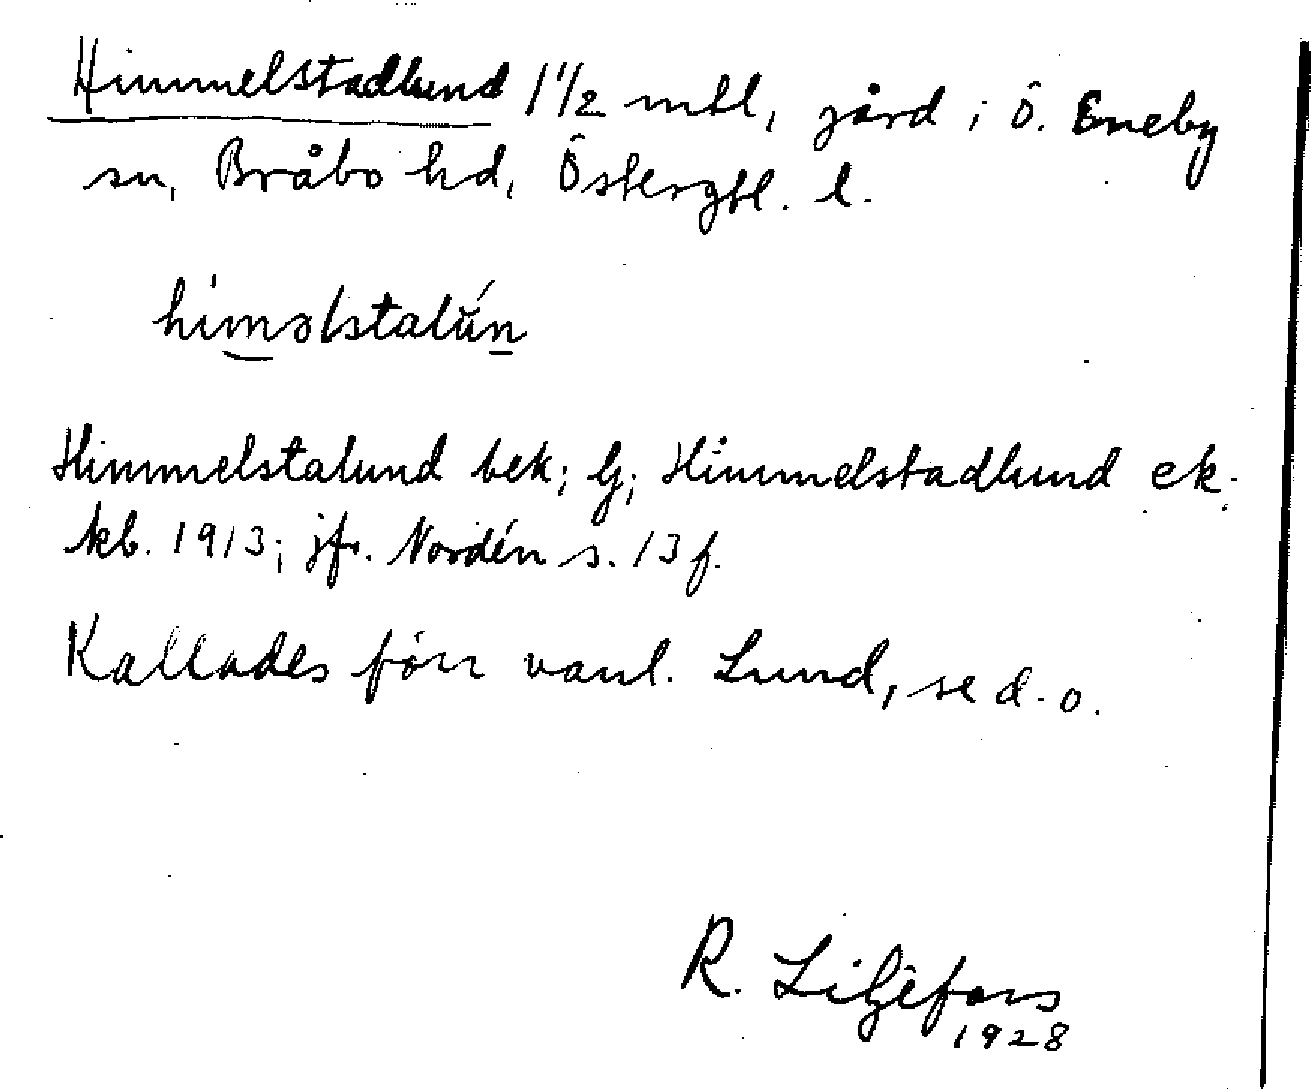 Himmelstadlund 1 1/2 mtl, gård i Ö. Eneby
sn, Bråbo hd, Östergtl. l.
himəlstalún
Himmelstalund bek; Gj; Himmelstadlund ek.
kb. 1913; jfr. Nordén s. 13 f.
Kallades förr vanl. Lund, se d. o.
R. Liljefors
1928